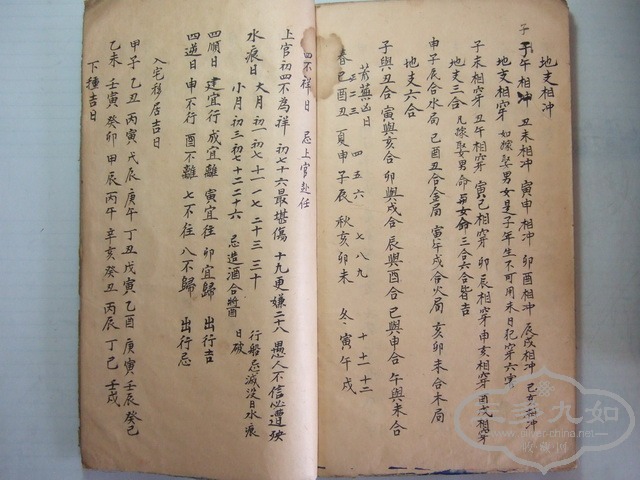 地支相冲
子午相冲 丑未相冲 寅申相冲 卯酉相冲 辰戌相冲 巳亥相冲
地支相穿 如嫁娶男女是子年生不可用未日犯穿六害
子未相穿 丑午相穿 寅巳相穿 卯辰相穿 申亥相穿 酉戌相穿
地支三合 凡嫁娶男命女命三合六合皆吉
申子辰合水局 巳酉丑合金局 寅午戌合火局 亥卯未合木局
地支六合
子與丑合 寅與亥合 卯與戌合 辰與酉合 巳與申合 午與未合
荒蕪凶日
正二三 四五六 七八九 十十一十二
春巳酉丑 夏申子辰 秋亥卯未 冬寅午戌
四不祥日 忌上官赴任
上官初四不為祥 初七十六最堪傷 十九更嫌二十八 愚人不信必遭殃
水痕日 大月初一初七十一十七二十三三十 行船忌滅没日水痕
小月初三初七十二二十六 忌造酒合醬 日破
四順日 建宜行 成宜離 寅宜往 卯宜歸 出行吉
四逆日 申不行 酉不離 七不往 八不歸 出行忌
入宅移居吉日
甲子 乙丑 丙寅 戊辰 庚午 丁丑 戊寅 乙酉 庚寅 壬辰 癸巳
乙未 壬寅 癸卯 甲辰 丙午 辛亥 癸丑 丙辰 丁巳 壬戌
下種吉日
三多九如
www.niver-china.net
收·藏·刊